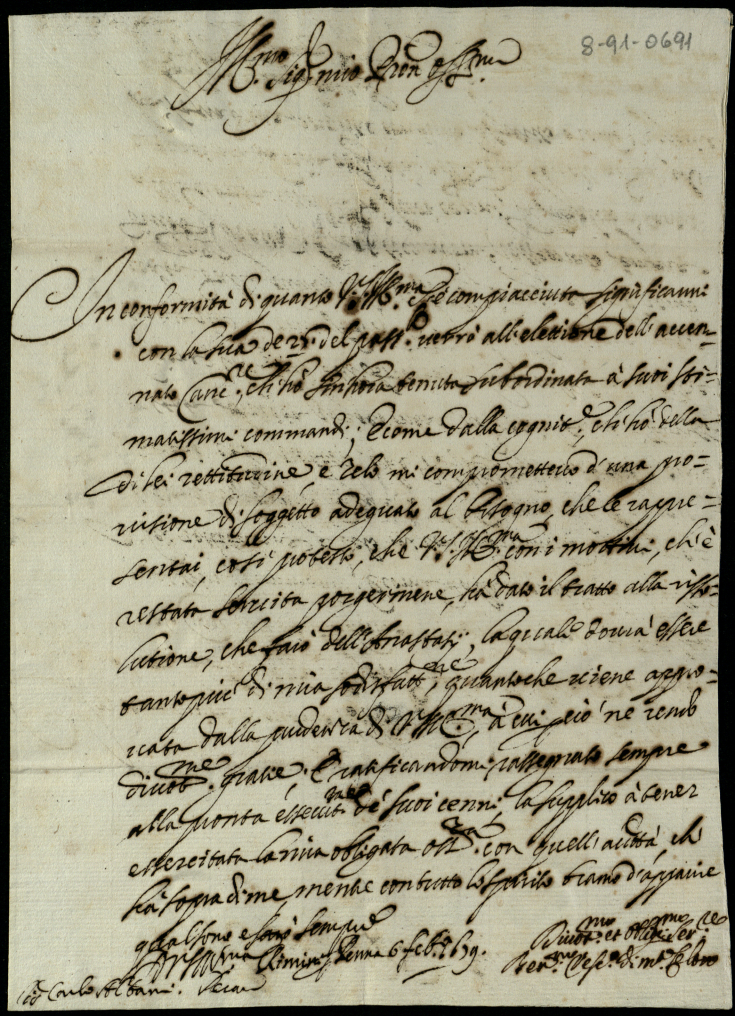 8-91-0691
Ill.mo Sig.r mio Pron Oss.mo
In conformità di quanto V.S. Ill.ma si è compiacciuta significarmi
con la sua de 25 del pass.to verrò all'elettione dell'accen-
nato Canc.re, ch'hò sinhora tenuta subordinata à suoi sti-
matissimi commandi; E come dalla cognit.e, ch'hò della
di lei rettitudine, e zelo mi compromettevo d'una pro-
visione di soggetto adeguato al bisogno, che le rappre-
sentai, così potess, che V.S. Ill.ma con i mottivi, ch'è
restata servita porgermene, hà dato il tratto alla riso-
lutione, che farò dell', la quale dovrà essere
tanto più di mia sodisfatt.ne, quanto che viene appro-
vata dalla prudenza di V.S. Ill.ma, à cui per ciò ne rendo
divot.me gratie; E ratificandomi rassegnato sempre
alla pronta essecut.ne de suoi cenni, la supplico à tener
essercitata la mia obligata oss.za con quell'auttà, ch'
hà sopra di me, mentre con tutto lo spirito bramo d'apparire
qual sono e sarò sempre
Di V.S. Ill.ma Penna 6 Feb.o 1639.
Divot.mo et oblig.mo Ser.re
Carlo Albani.